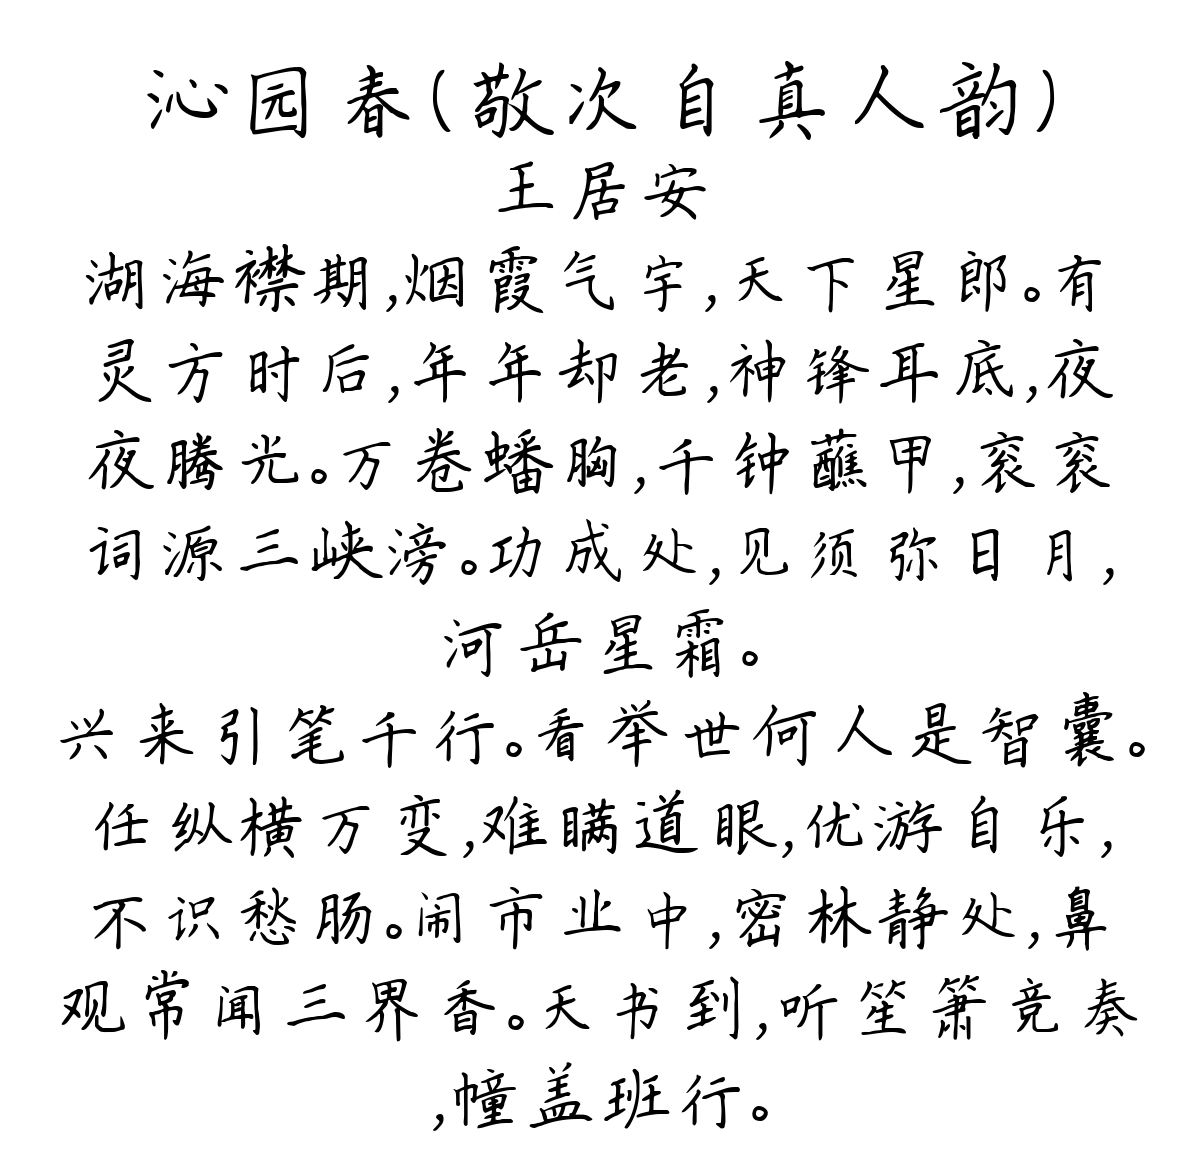 沁园春(敬次自真人韵)
王居安
湖海襟期,烟霞气宇,天下星郎。有
灵方时后,年年却老,神锋耳底,夜
夜腾光。万卷蟠胸,千钟蘸甲,衮衮
词源三峡滂。功成处,见须弥日月,
河岳星霜。
兴来引笔千行。看举世何人是智囊。
任纵横万变,难瞒道眼,优游自乐,
不识愁肠。闹市业中,密林静处,鼻
观常闻三界香。天书到,听笙箫竞奏
,幢盖班行。